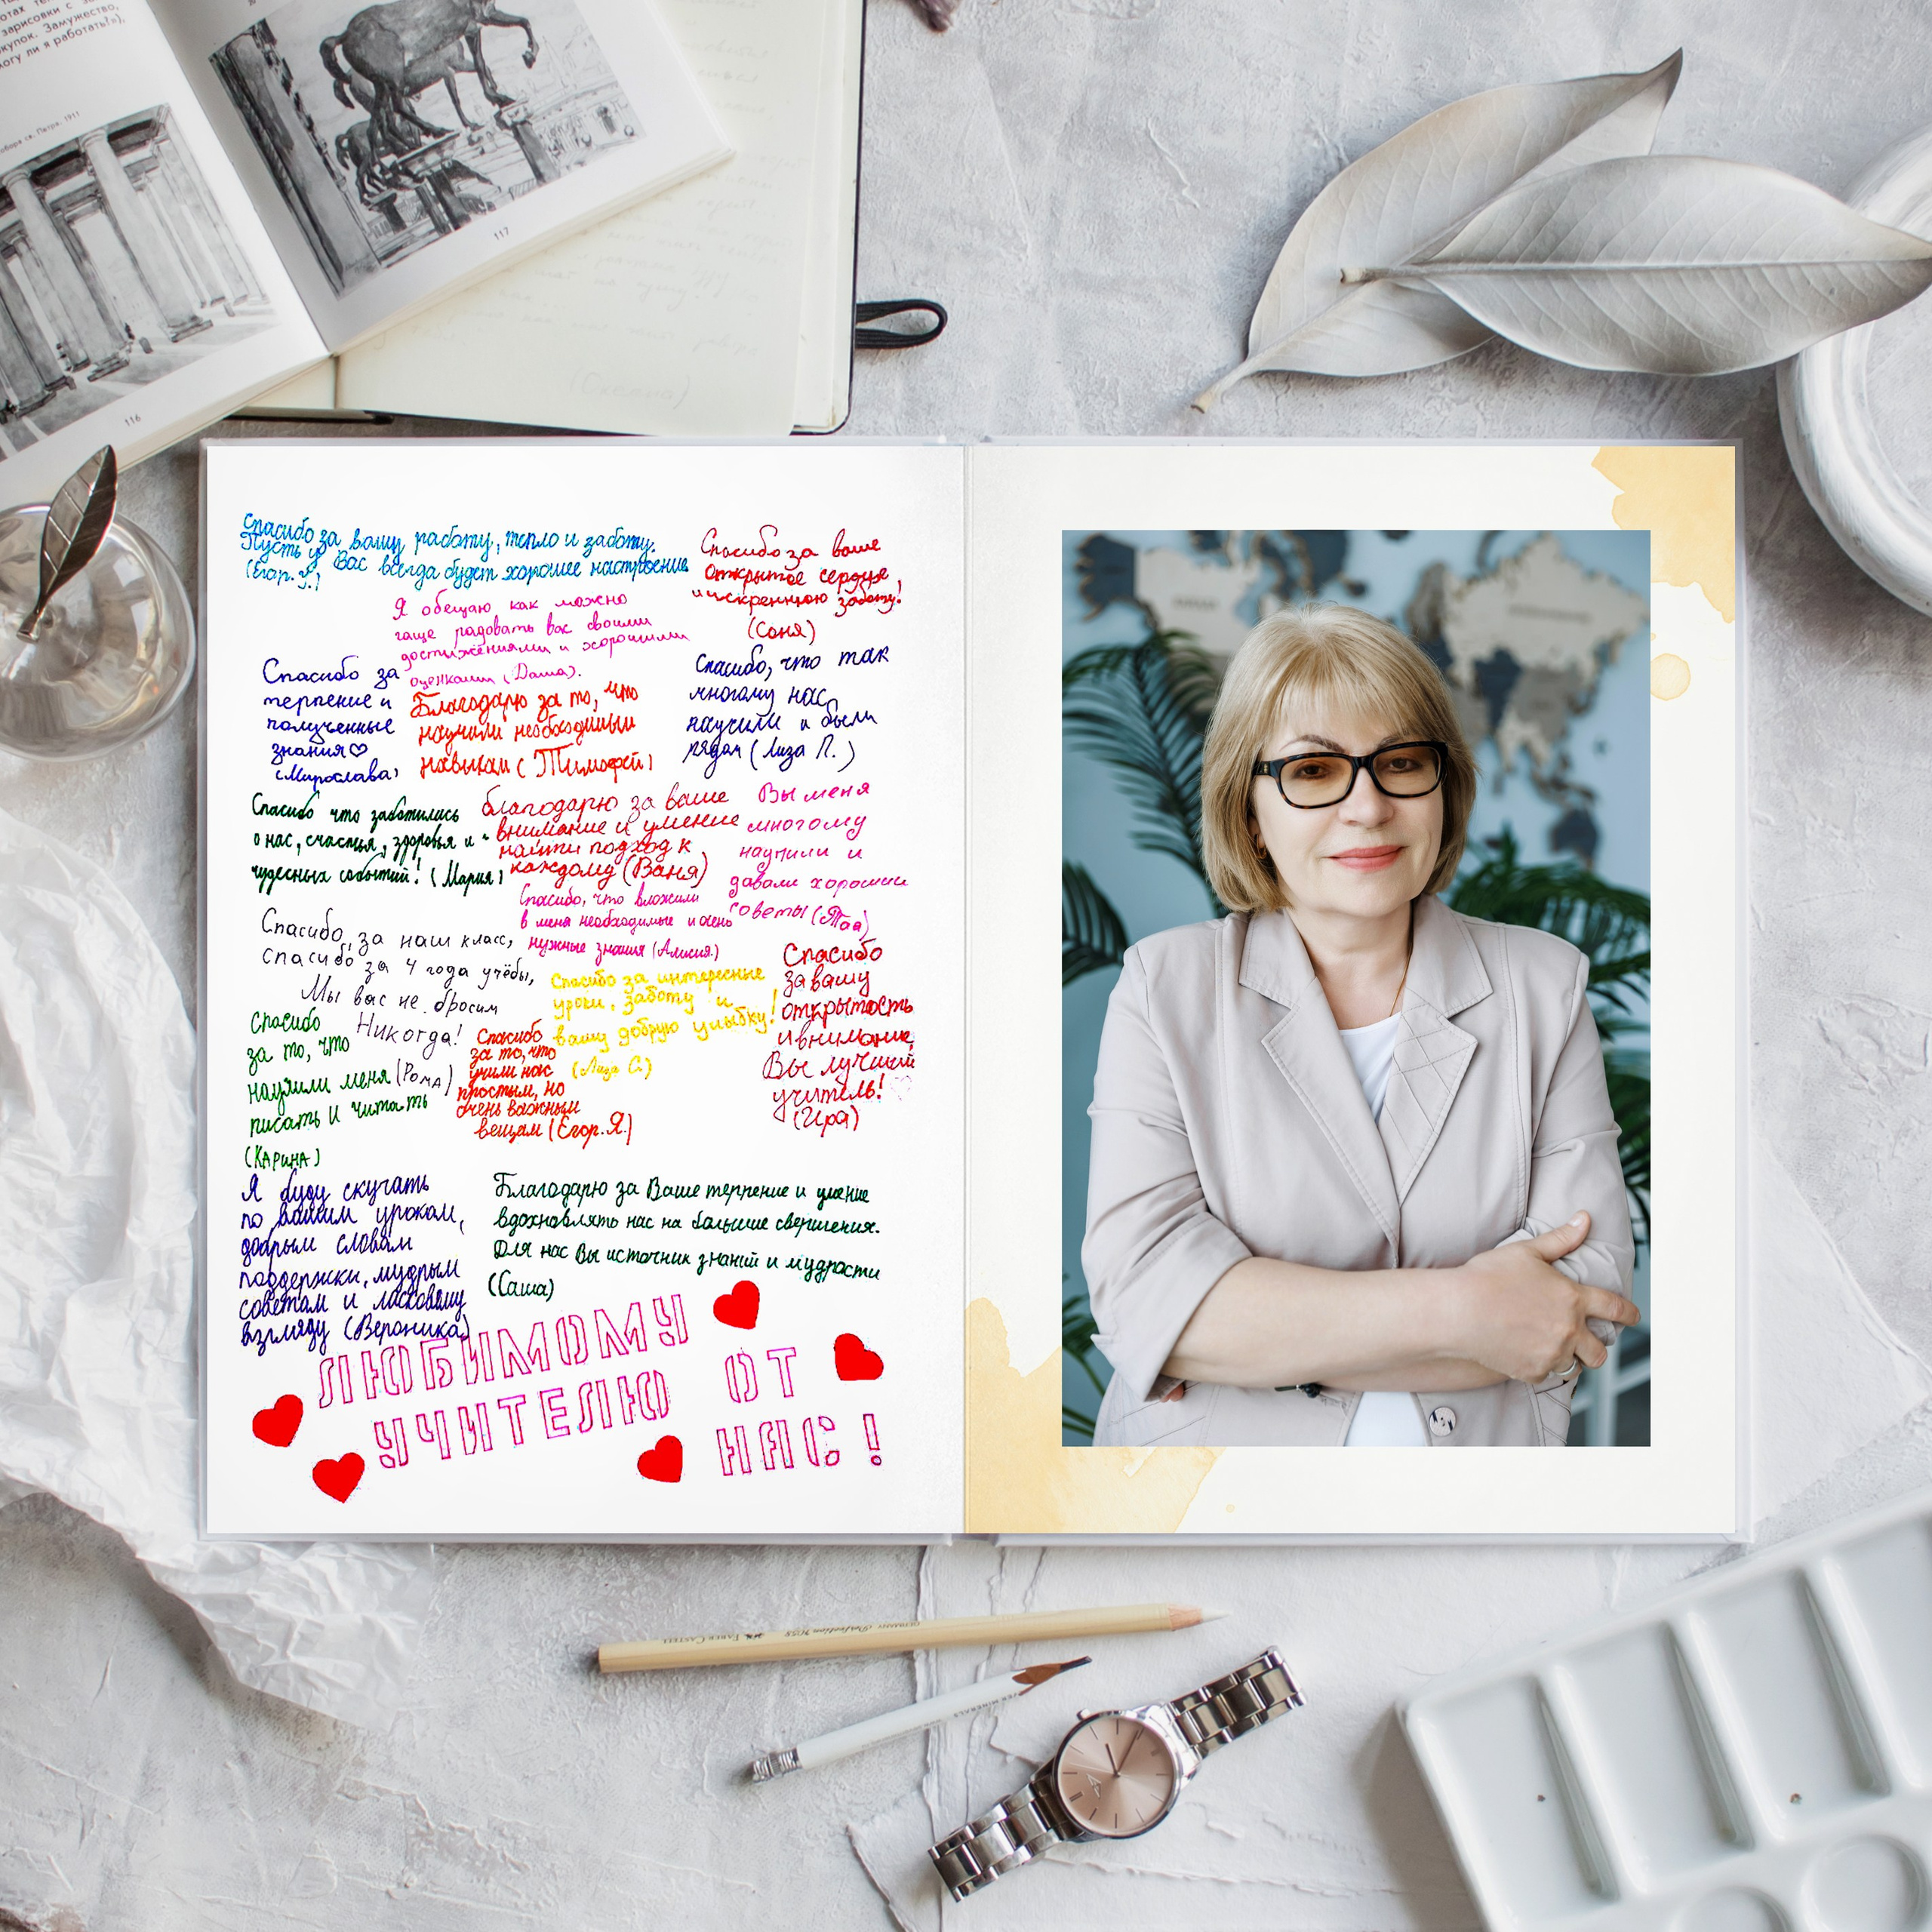 зарисовки с
купок. Замужество,
могу ли я работать?»),
117
116
Спасибо за вашу работу, тепло и заботу.
Пусть у Вас всегда будет хорошее настроение
(Егор. У.)
Спасибо за ваше
открытое сердце
и искреннюю заботу!
(Соня)
Я обещаю как можно
чаще радовать вас своими
достижениями и хорошими
оценками (Даша).
Спасибо за
терпение и
полученные
знания♡
(Мирослава)
Благодарю за то, что
научили необходимым
навыкам (Тимофей)
Спасибо, что так
многому нас
научили и были
рядом (Лиза П.)
Спасибо что заботились
о нас, счастья, здоровья и
чудесных событий! (Мария)
благодарю за ваше
внимание и умение
найти подход к
каждому (Ваня)
Вы меня
многому
научили и
давали хорошии
советы (Тая)
Спасибо, что вложили
в меня необходимые и очень
нужные знания (Алисия.)
Спасибо за наш класс,
спасибо за 4 года учёбы,
Мы вас не бросим
Никогда!
(Рома)
Спасибо за интересные
уроки, заботу и
вашу добрую улыбку!
(Лиза С.)
Спасибо
за вашу
открытость
и внимание
Вы лучший
учитель!
(Ира)
Спасибо
за то, что
научили меня
писать и читать
(Карина)
Спасибо
за то, что
учили нас
простым, но
очень важным
вещам (Егор. Я.)
Я буду скучать
по вашим урокам,
добрым словам
поддержки, мудрым
советам и ласковому
взгляду (Вероника)
Благодарю за Ваше терпение и умение
вдохновлять нас на большие свершения.
Для нас Вы источник знаний и мудрости
(Саша)
ЛЮБИМОМУ
УЧИТЕЛЮ ОТ
НАС!
FABER-CASTELL Perfection 7058 GERMANY